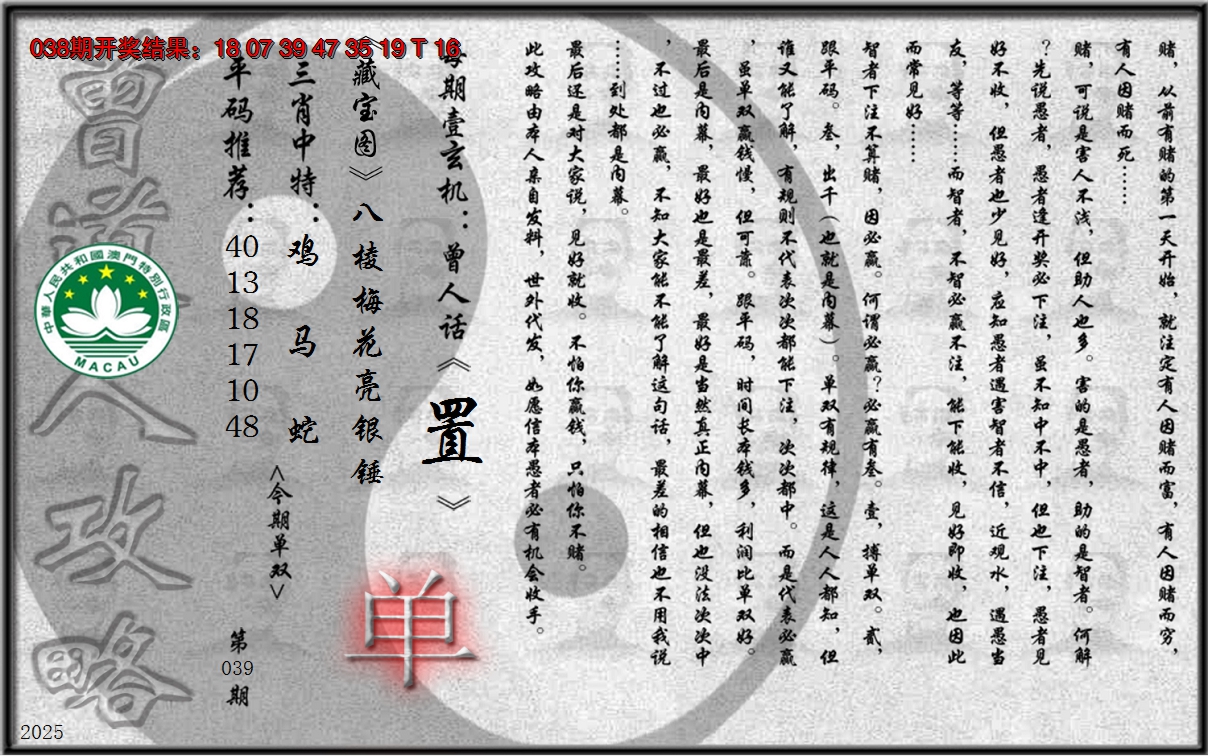 038期开奖结果：18 07 39 47 35 19 T 16
赌，从前有赌的第一天开始，就注定有人因赌而富，有人因赌而穷，
有人因赌而死……
赌，可说是害人不浅，但助人也多。害的是愚者，助的是智者。何解
？先说愚者，愚者逢开奖必下注，虽不知中不中，但也下注，愚者见
好不收，但愚者也少见好，应知愚者遇害智者不信，近观水，遇愚当
友，等等……而智者，不智必赢不注，能下能收，见好即收，也因此
而常见好……
智者下注不算赌，因必赢。何谓必赢？必赢有叁。壹，搏单双。贰，
跟平码。叁，出千（也就是内幕）。单双有规律，这是人人都知，但
谁又能了解，有规则不代表次次都能下注，次次都中。而是代表必赢
，虽单双赢钱慢，但可靠。跟平码，时间长本钱多，利润比单双好。
最后是内幕，最好也是最差，最好是当然真正内幕，但也没法次次中
，不过也必赢，不知大家能不能了解这句话，最差的相信也不用我说
……到处都是内幕。
最后还是对大家说，见好就收。不怕你赢钱，只怕你不赌。
此攻略由本人亲自发料，世外代发，如愿信本愚者必有机会收手。
每期壹玄机：曾人话《置》
《藏宝图》八棱梅花亮银锤
三肖中特：鸡 马 蛇
<今期单双>
单
平码推荐：
40
13
18
17
10
48
第
039
期
曾道人攻略
中華人民共和國澳門特別行政區
MACAU
2025